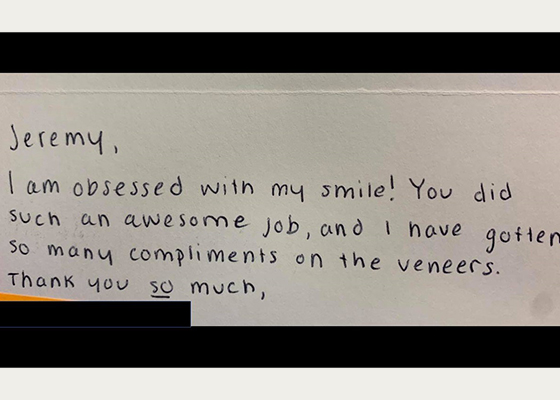 Jeremy,
I am obsessed with my smile! You did
such an awesome job, and I have gotten
so many compliments on the veneers.
Thank you so much,